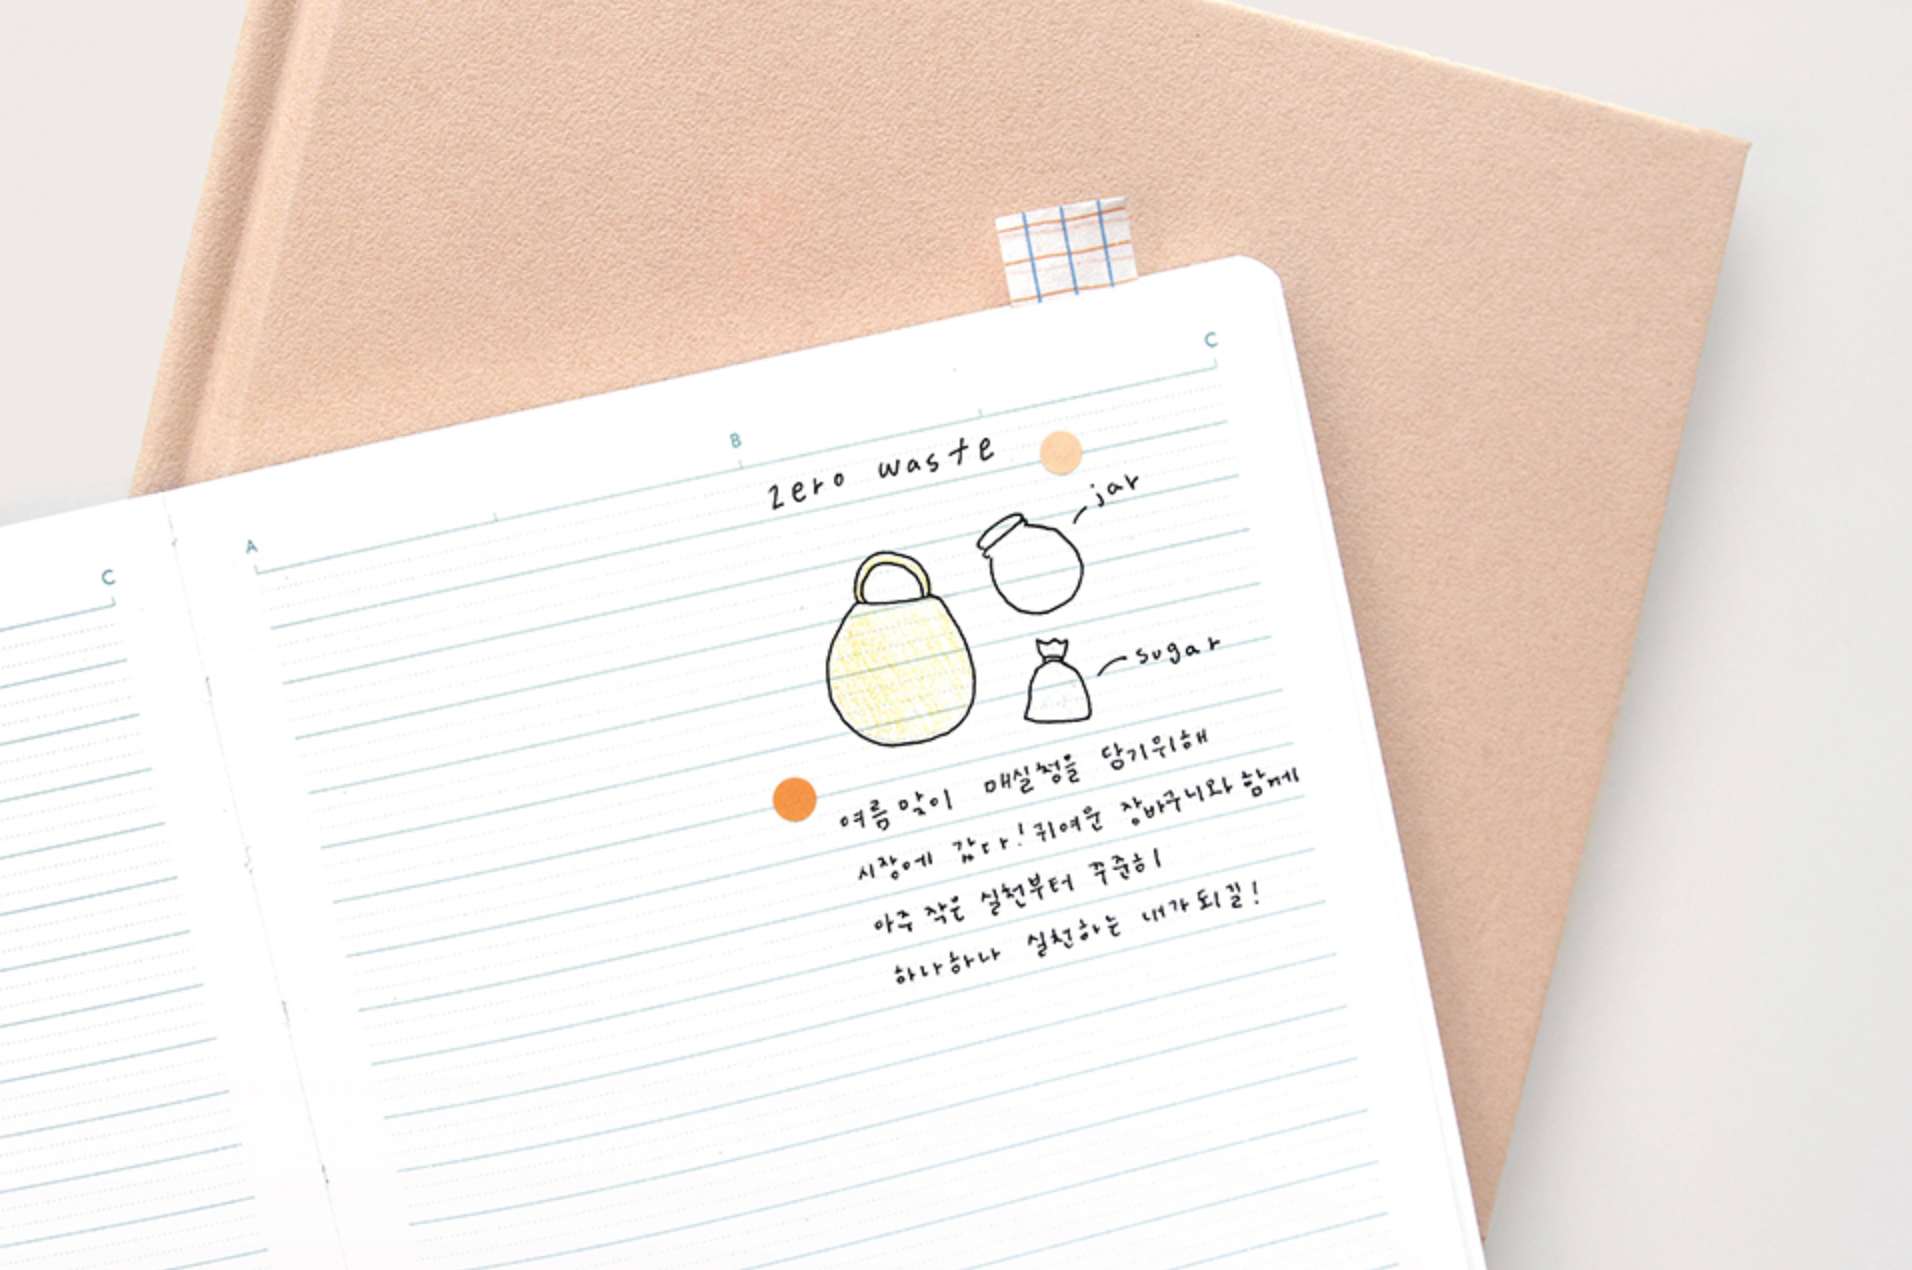 C
B
A
C
zero waste
jar
sugar
여름 맞이 매실청을 담기위해
시장에 갔다! 귀여운 장바구니와 함께
아주 작은 실천부터 꾸준히
하나하나 실천하는 내가 되길!